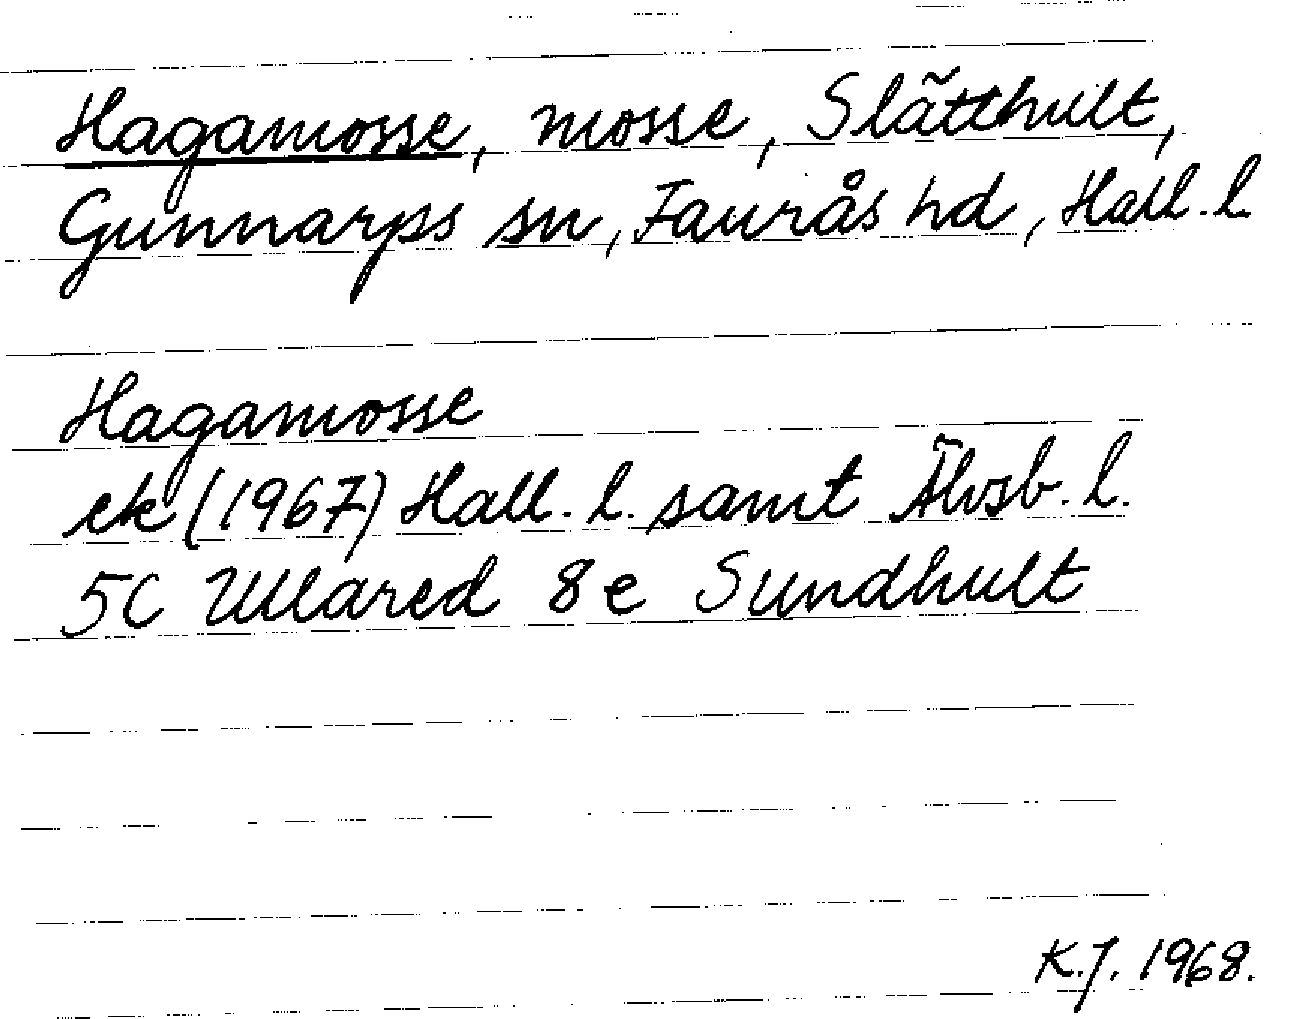 Hagamosse, mosse, Slätthult,
Gunnarps sn, Faurås hd, Hall. l.
Hagamosse
ek (1967) Hall. l. samt Älvsb. l.
5C Ullared 8e Sundhult
K.J. 1968.